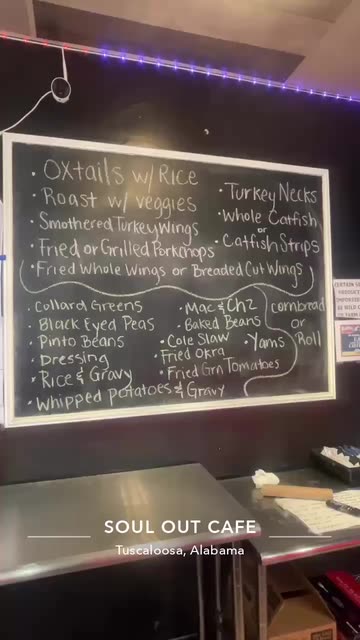 • Oxtails w/ Rice
• Roast w/ Veggies
• Smothered Turkey Wings
• Fried or Grilled Porkchops
• Fried Whole Wings or Breaded Cut Wings
• Turkey Necks
• Whole Catfish
or
• Catfish Strips
• Collard Greens
• Black Eyed Peas
• Pinto Beans
• Dressing
• Rice & Gravy
• Whipped Potatoes & Gravy
• Mac & Chz
• Baked Beans
• Cole Slaw
• Fried Okra
• Fried Grn Tomatoes
• Yams
Cornbread
or
Roll
CERTAIN S
PRODUCT
IMPORTED
SOUL OUT CAFE
Tuscaloosa, Alabama